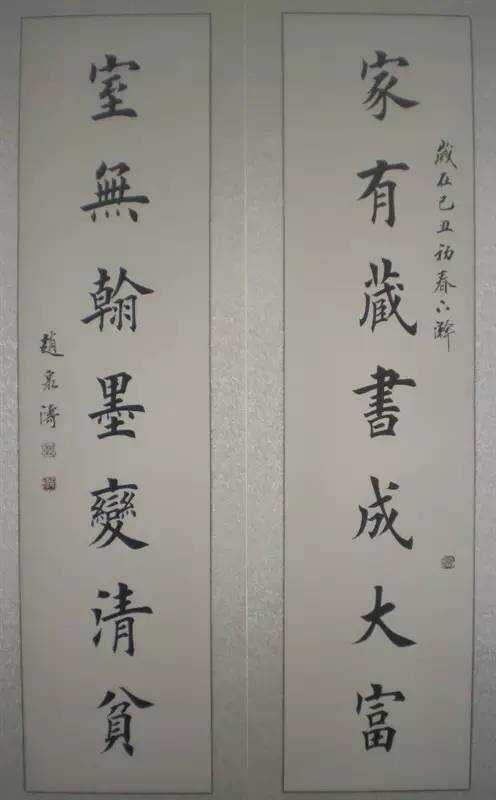 家有藏書成大富
歲在己丑初春下澣
室無翰墨變清貧
趙泉濤